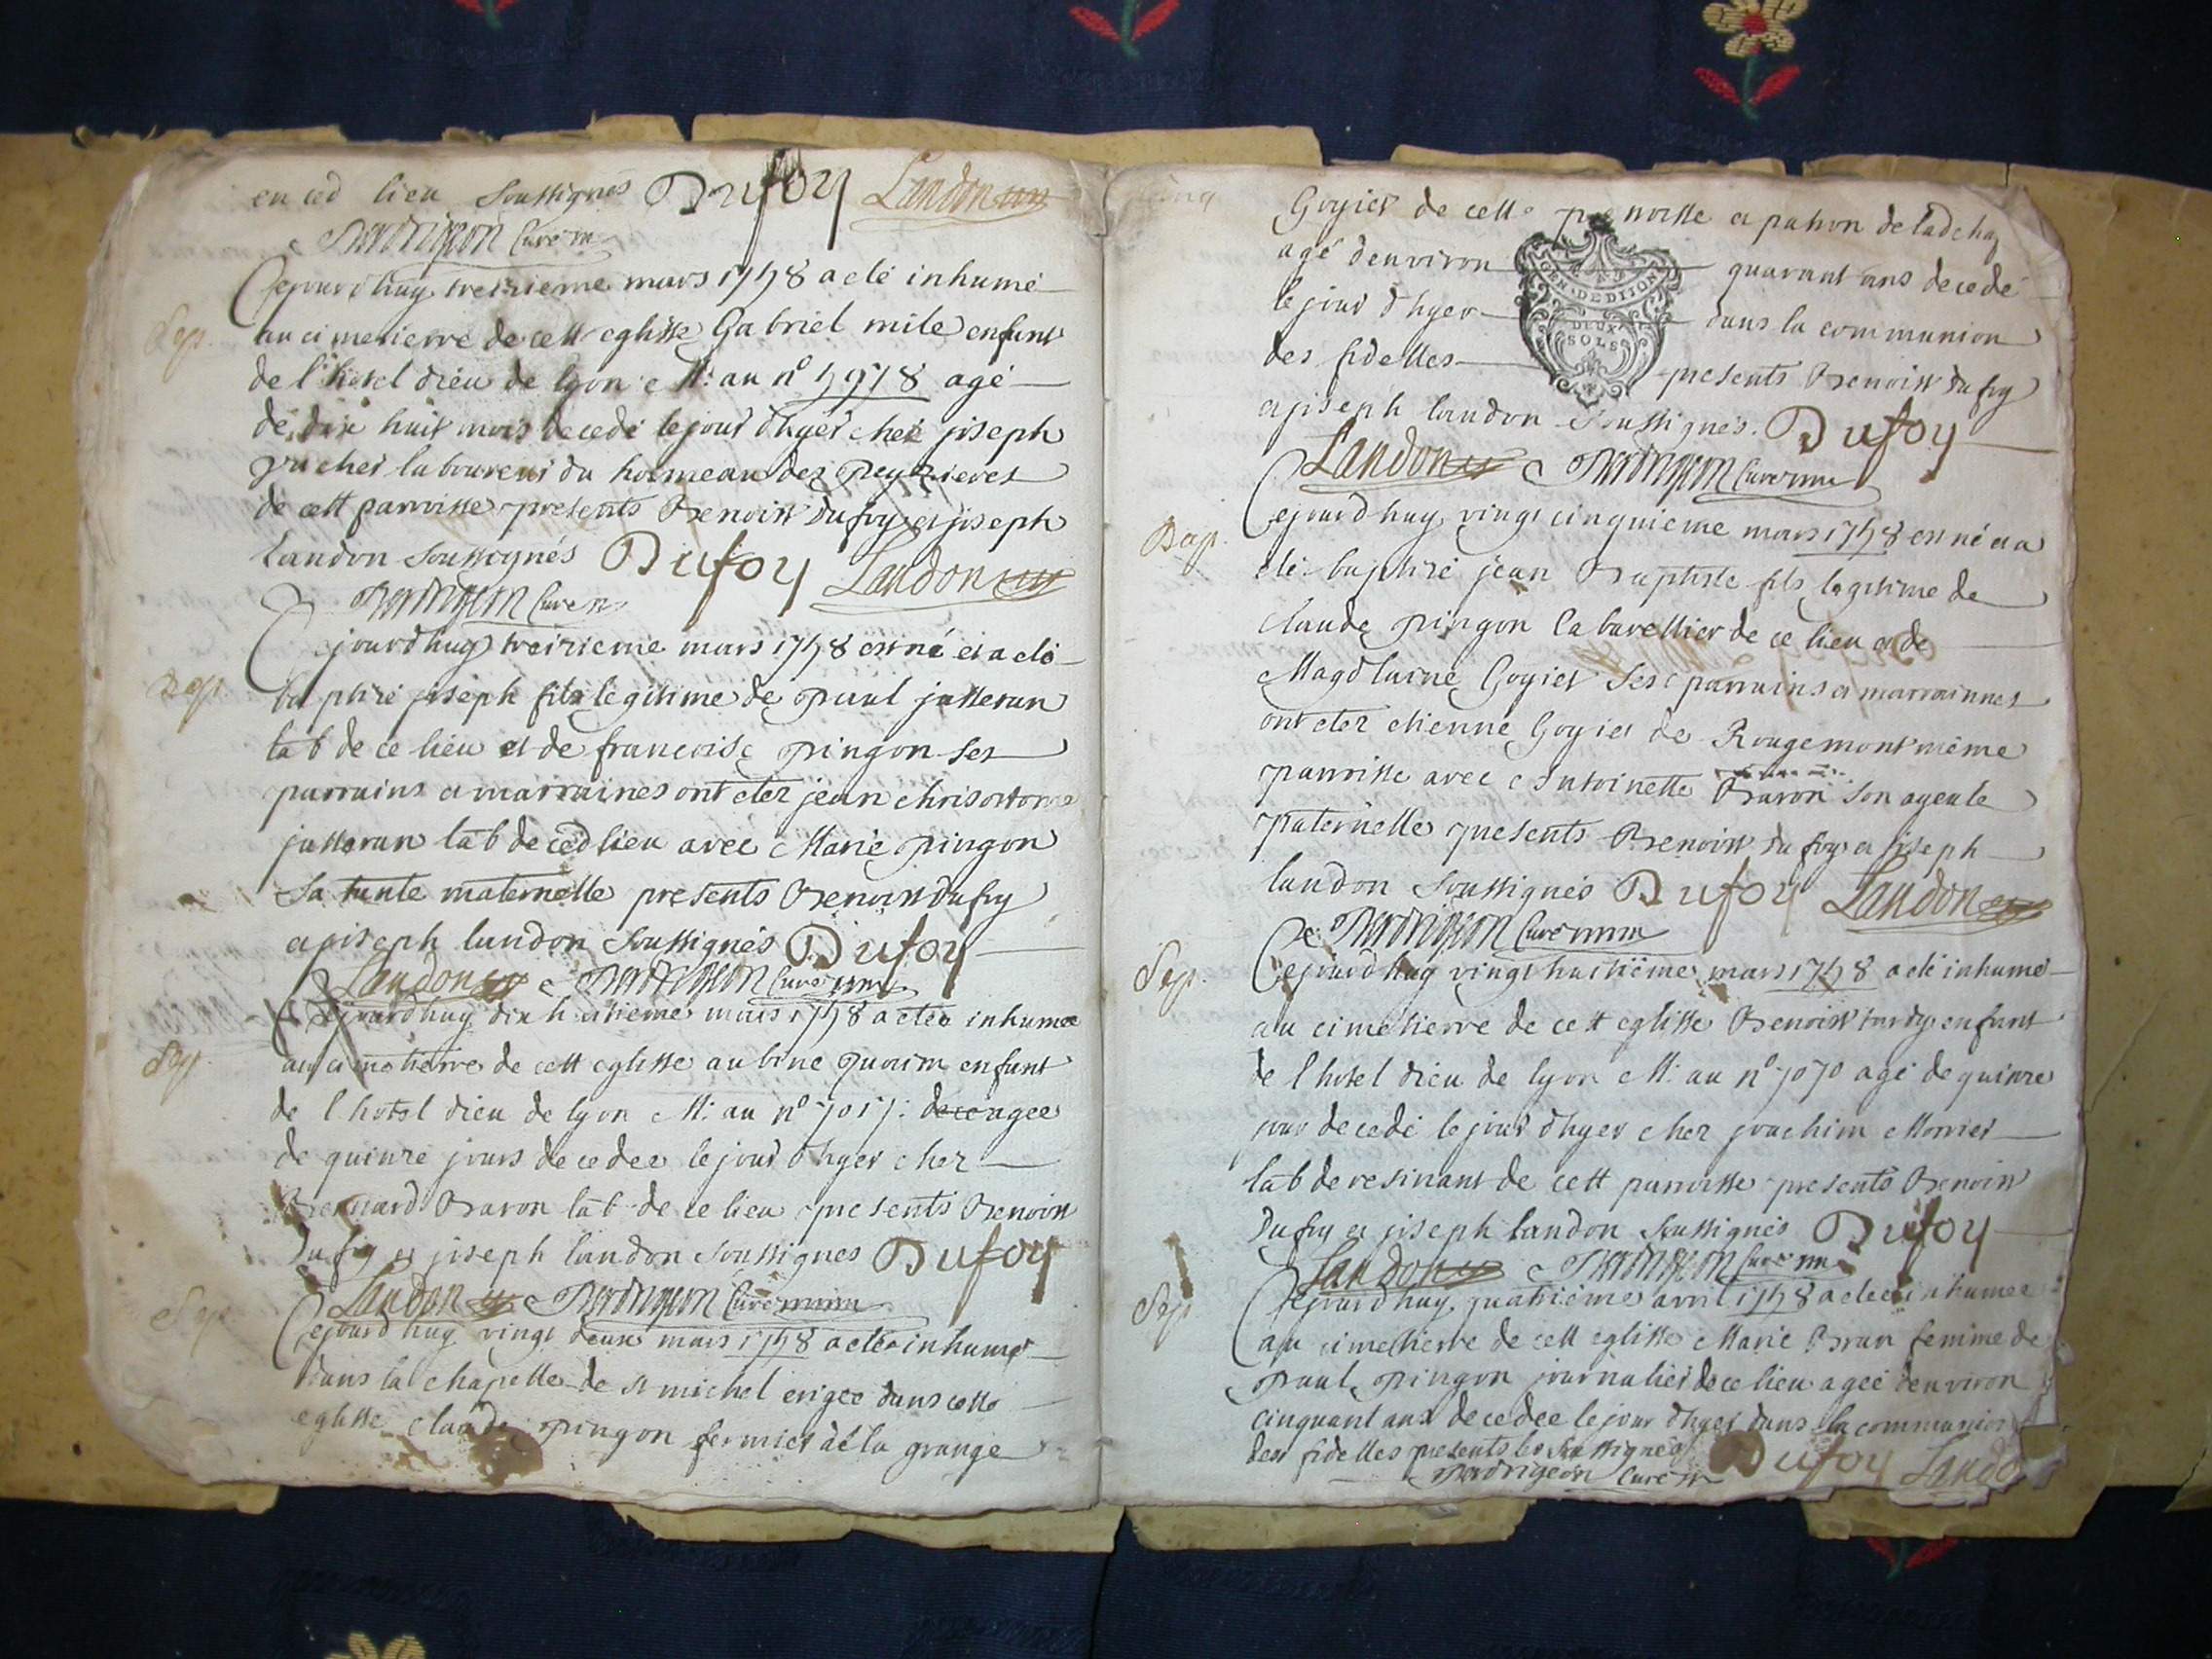 en ced lieu soussignés Dufoy Landon
curé
Cejourdhuy treizieme mars 1758 a eté inhumé
Sep.
au cimetierre de cett eglisse Gabriel mile enfant
de l'hotel dieu de lyon M: au n° 5978 agé
de dix huit mois decedé le jour d'hyer chez joseph
laboureur du hormeau des Peyzieres
de cett parroisse presents Benoist dufoy et joseph
landon soussignés Dufoy Landon
curé
Cejourdhuy treizieme mars 1758 est né et a eté
Bap.
baptizé joseph fils legitime de paul jasseran
lab de ce lieu et de francoise pingon ses
parrains et marraines ont etez jean chrisostome
jasseran lab de ced lieu avec Marie pingon
sa tante maternelle presents Benoist dufoy
et joseph landon soussignés Dufoy
Landon curé
Cejourdhuy dix huitieme mars 1758 a eteé inhumeé
Sep.
au cimetierre de cett eglisse aubine enfant
de l hotel dieu de lyon M: au n° 7017: dece ageé
de quinze jours decedeé le jour d'hyer chez
Bernard Baron lab de ce lieu presents Benoist
dufoy et joseph landon soussignés Dufoy
Landon curé
Sep.
Cejourdhuy vingt deux mars 1758 a eté inhumé
dans la chapelle de st michel erigeé dans cette
eglisse claude pingon fermier de la grange
Goyiet de cette parroisse et patron de ladchaz
agé denviron quarant ans decedé
GEN. DE DIJON
DEUX
SOLS
le jour d'hyer dans la communion
des fidelles presents Benoist dufoy
et joseph landon soussignés. Dufoy
Landon curé
Cejourdhuy vingt cinquieme mars 1758 est né et a
Bap.
eté baptizé jean Baptiste fils legitime de
claude pingon cabarettier de ce lieu et de
Magdlaine Goyiet ses parrains et marrainnes
ont etez etienne Goyiet de Rougemont même
parroisse avec Antoinette Baron son ayeule
paternelle presents Benoist dufoy et joseph
landon soussignés Dufoy Landon
curé
Sep.
Cejourdhuy vingt huitiême mars 1758 a eté inhumé
au cimetierre de cett eglisse Benoist tardy enfant
de l hotel dieu de lyon M: au n° 7070 agé de quinze
jour decedé le jour d'hyer chez joachim Monier
lab de resinant de cett parroisse presents Benoist
dufoy et joseph landon soussignés Dufoy
Landon curé
Sep.
Cejourdhuy quatriéme avril 1758 a eteé inhumeé
au cimetierre de cett eglisse Marie Brun femme de
paul pingon journalier de ce lieu ageé denviron
cinquant ans decedeé le jour d'hyer dans la communion
des fidelles presents les soussignés Dufoy Lando
curé